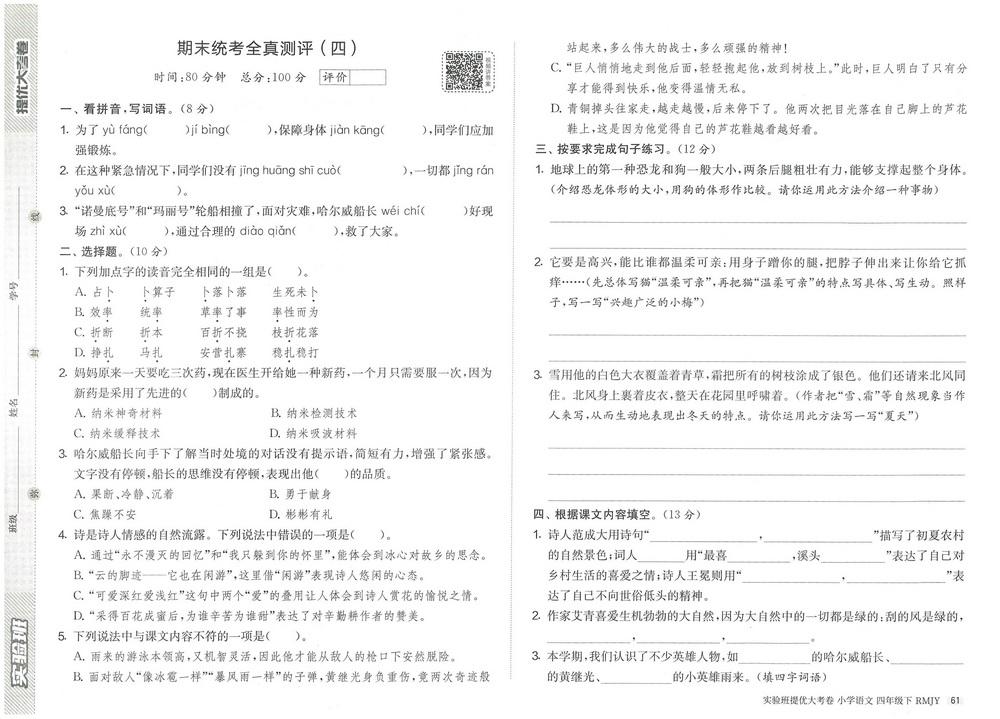 提优大考卷
学号
姓名
班级
线
封
弥
实验班
期末统考全真测评（四）
时间：80分钟　总分：100分　评价
视频讲答案
一、看拼音，写词语。（8分）
1. 为了 yù fáng(　　)jí bìng(　　)，保障身体 jiàn kāng(　　)，同学们应加
强锻炼。
2. 在这种紧急情况下，同学们没有 jīng huāng shī cuò(　　)，一切都 jǐng rán
yǒu xù(　　)。
3. “诺曼底号”和“玛丽号”轮船相撞了，面对灾难，哈尔威船长 wéi chí(　　)好现
场 zhì xù(　　)，通过合理的 diào qiǎn(　　)，救了大家。
二、选择题。（10分）
1. 下列加点字的读音完全相同的一组是(　　)。
A. 占卜　卜算子　卜落卜落　生死未卜
B. 效率　统率　草率了事　率性而为
C. 折断　折本　百折不挠　枝折花落
D. 挣扎　马扎　安营扎寨　稳扎稳打
2. 妈妈原来一天要吃三次药，现在医生开给她一种新药，一个月只需要服一次，因为
新药是采用了先进的(　　)制成的。
A. 纳米神奇材料　B. 纳米检测技术
C. 纳米缓释技术　D. 纳米吸波材料
3. 哈尔威船长向手下了解当时处境的对话没有提示语，简短有力，增强了紧张感。
文字没有停顿，船长的思维没有停顿，表现出他(　　)的品质。
A. 果断、冷静、沉着　B. 勇于献身
C. 焦躁不安　D. 彬彬有礼
4. 诗是诗人情感的自然流露。下列说法中错误的一项是(　　)。
A. 通过“永不漫灭的回忆”和“我只躲到你的怀里”，能体会到冰心对故乡的思念。
B. “云的脚迹——它也在闲游”，这里借“闲游”表现诗人悠闲的心态。
C. “可爱深红爱浅红”这句中两个“爱”的叠用让人体会到诗人赏花的愉悦之情。
D. “采得百花成蜜后，为谁辛苦为谁甜”表达了对辛勤耕作者的赞美。
5. 下列说法中与课文内容不符的一项是(　　)。
A. 雨来的游泳本领高，又机智灵活，因此他才能从敌人的枪口下安然脱险。
B. 面对敌人“像冰雹一样”“暴风雨一样”的子弹，黄继光身负重伤，竟两次奇迹般
站起来，多么伟大的战士，多么顽强的精神！
C. “巨人悄悄地走到他后面，轻轻抱起他，放到树枝上。”此时，巨人明白了只有分
享才能得到快乐，他变得温情无私。
D. 青铜掉头往家走，越走越慢，后来停下了。他两次把目光落在自己脚上的芦花
鞋上，这是因为他觉得自己的芦花鞋越看越好看。
三、按要求完成句子练习。（12分）
1. 地球上的第一种恐龙和狗一般大小，两条后腿粗壮有力，能够支撑起整个身体。
（介绍恐龙体形的大小，用狗的体形作比较。请你运用此方法介绍一种事物）
2. 它要是高兴，能比谁都温柔可亲：用身子蹭你的腿，把脖子伸出来让你给它抓
痒……（先总体写猫“温柔可亲”，再把猫“温柔可亲”的特点写具体、写生动。照样
子，写一写“兴趣广泛的小梅”）
3. 雪用他的白色大衣覆盖着青草，霜把所有的树枝涂成了银色。他们还请来北风同
住。北风身上裹着皮衣，整天在花园里呼啸着。（作者把“雪、霜”等自然现象当作
人来写，从而生动地表现出冬天的特点。请你运用此方法写一写“夏天”）
四、根据课文内容填空。（13分）
1. 诗人范成大用诗句“________，________”描写了初夏农村
的自然景色；词人____用“最喜______，溪头______”表达了自己对
乡村生活的喜爱之情；诗人王冕则用“________，________”表
达了自己不向世俗低头的精神。
2. 作家艾青喜爱生机勃勃的大自然，因为大自然中的一切都是绿的：刮的风是绿的，
________，________，________。
3. 本学期，我们认识了不少英雄人物，如______的哈尔威船长、______
的黄继光、______的小英雄雨来。（填四字词语）
实验班提优大考卷 小学语文 四年级下 RMJY　61